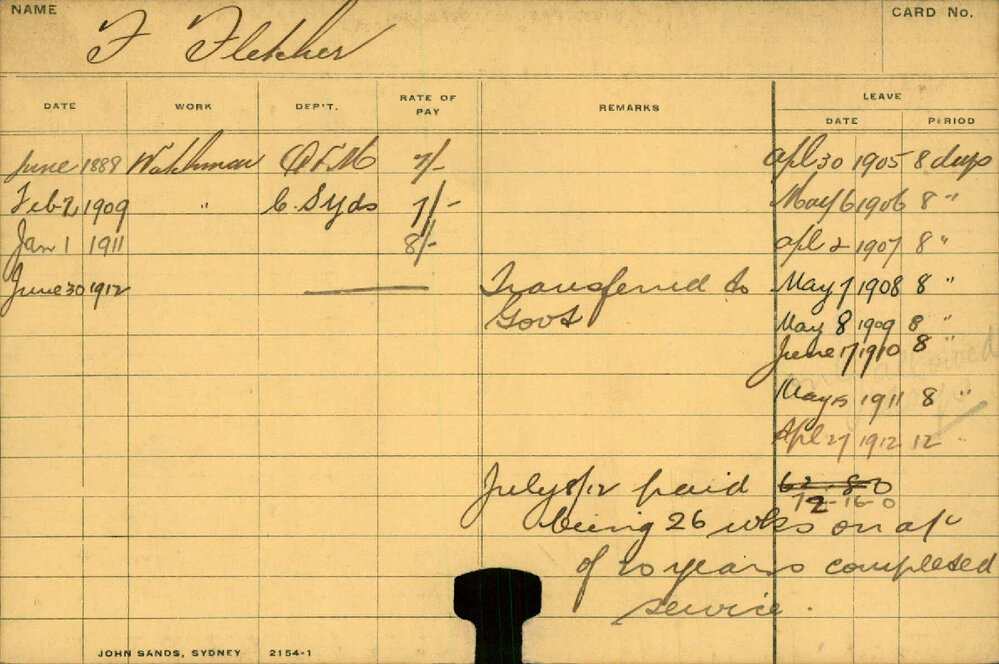 NAME
CARD No.
F Fletcher
DATE WORK DEP'T. RATE OF PAY REMARKS LEAVE
DATE PERIOD
June 1888 Watchman 7/- Apl 30 1905 8 days
Feb 2 1909 " C. Syds 7/- May 6 1906 8 "
Jan 1 1911 8/- Apl 2 1907 8 "
June 30 1912 Transferred to May 7 1908 8 "
Govt May 8 1909 8 "
June 17 1910 8 "
May 15 1911 8 "
Apl 27 1912 12 "
July 8/12 paid 62-8-0
72-16-0
being 26 wks on a/c
of 20 years completed
service.
JOHN SANDS, SYDNEY 2154-1